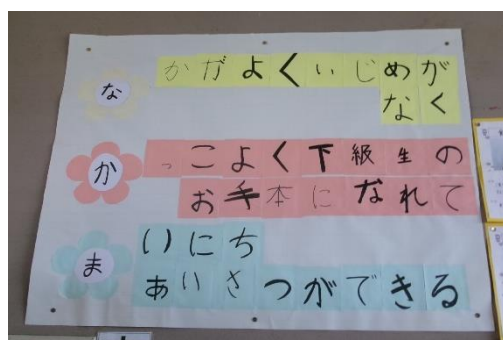 な
かがよくいじめが
なく
か
っこよく下級生の
お手本になれて
ま
いにち
あいさつができる